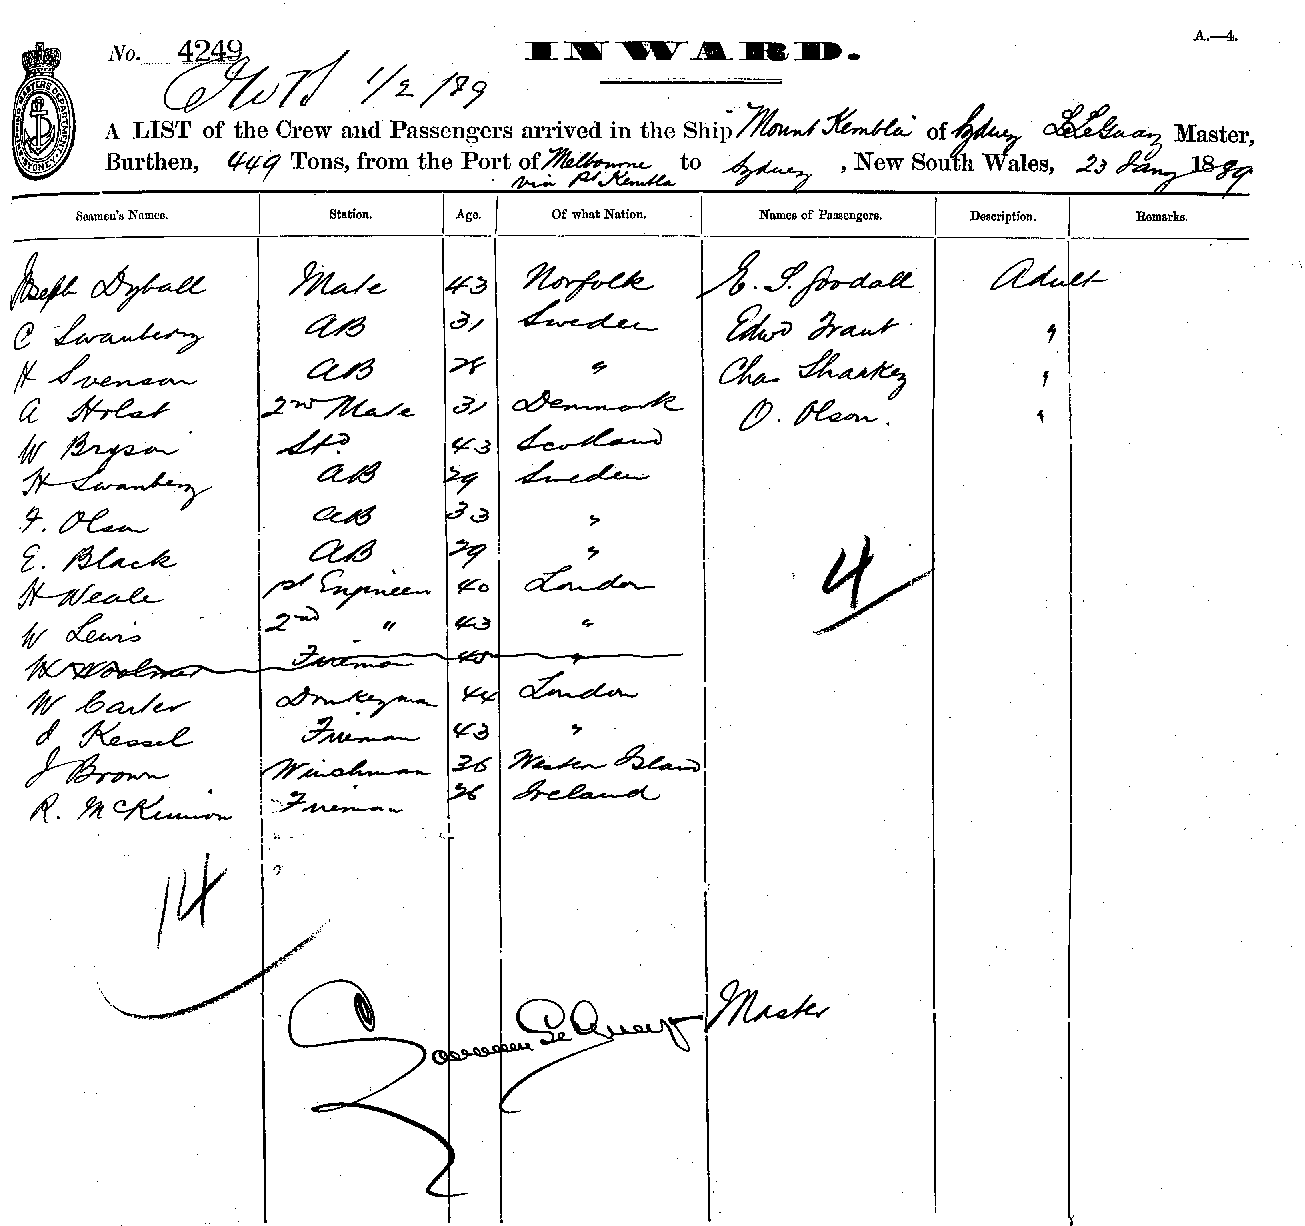 A.—4.
No. 4249 INWARD.
1/2/89
A LIST of the Crew and Passengers arrived in the Ship Mount Kembla of Sydney Master,
Burthen, 449 Tons, from the Port of Melbourne to Sydney, New South Wales, 23 Jany 1889
via Pt Kembla
Seamen's Names. Station. Age. Of what Nation. Names of Passengers. Description. Remarks.
Joseph Dyball Mate 43 Norfolk E. S. Goodall Adult
C Swanberg AB 31 Sweden Edwd Trant "
H Svenson AB 28 " Chas Sharkey "
A Holst 2nd Mate 31 Denmark O. Olson. "
W Bryson Std 43 Scotland
H Swanberg AB 29 Sweden
F. Olson AB 33 "
E. Black AB 29 "
H Neale 1st Engineer 40 London
W Lewis 2nd " 43 "
Fireman 45 "
W Carter Donkeyman 44 London
J Kessel Fireman 43 "
J Brown Winchman 36 Western Island
R. McKinnon Fireman 26 Ireland
4
14
Le Quay Master